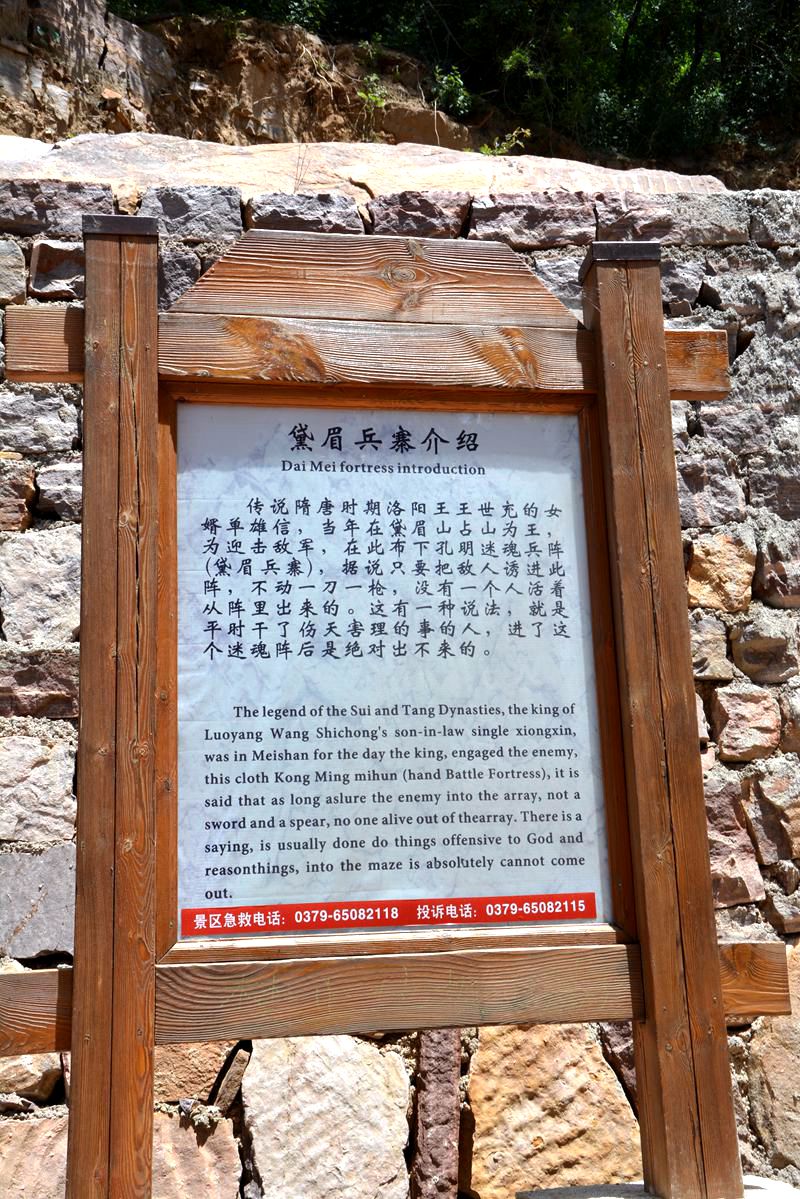 黛眉兵寨介绍
Dai Mei fortress introduction
传说隋唐时期洛阳王王世充的女
婿单雄信，当年在黛眉山占山为王，
为迎击敌军，在此布下孔明迷魂兵阵
(黛眉兵寨)，据说只要把敌人诱进此
阵，不动一刀一枪，没有一个人活着
从阵里出来的。这有一种说法，就是
平时干了伤天害理的事的人，进了这
个迷魂阵后是绝对出不来的。
The legend of the Sui and Tang Dynasties, the king of
Luoyang Wang Shichong's son-in-law single xiongxin,
was in Meishan for the day the king, engaged the enemy,
this cloth Kong Ming mihun (hand Battle Fortress), it is
said that as long aslure the enemy into the array, not a
sword and a spear, no one alive out of thearray. There is a
saying, is usually done do things offensive to God and
reasonthings, into the maze is absolutely cannot come
out.
景区急救电话：0379-65082118 投诉电话：0379-65082115